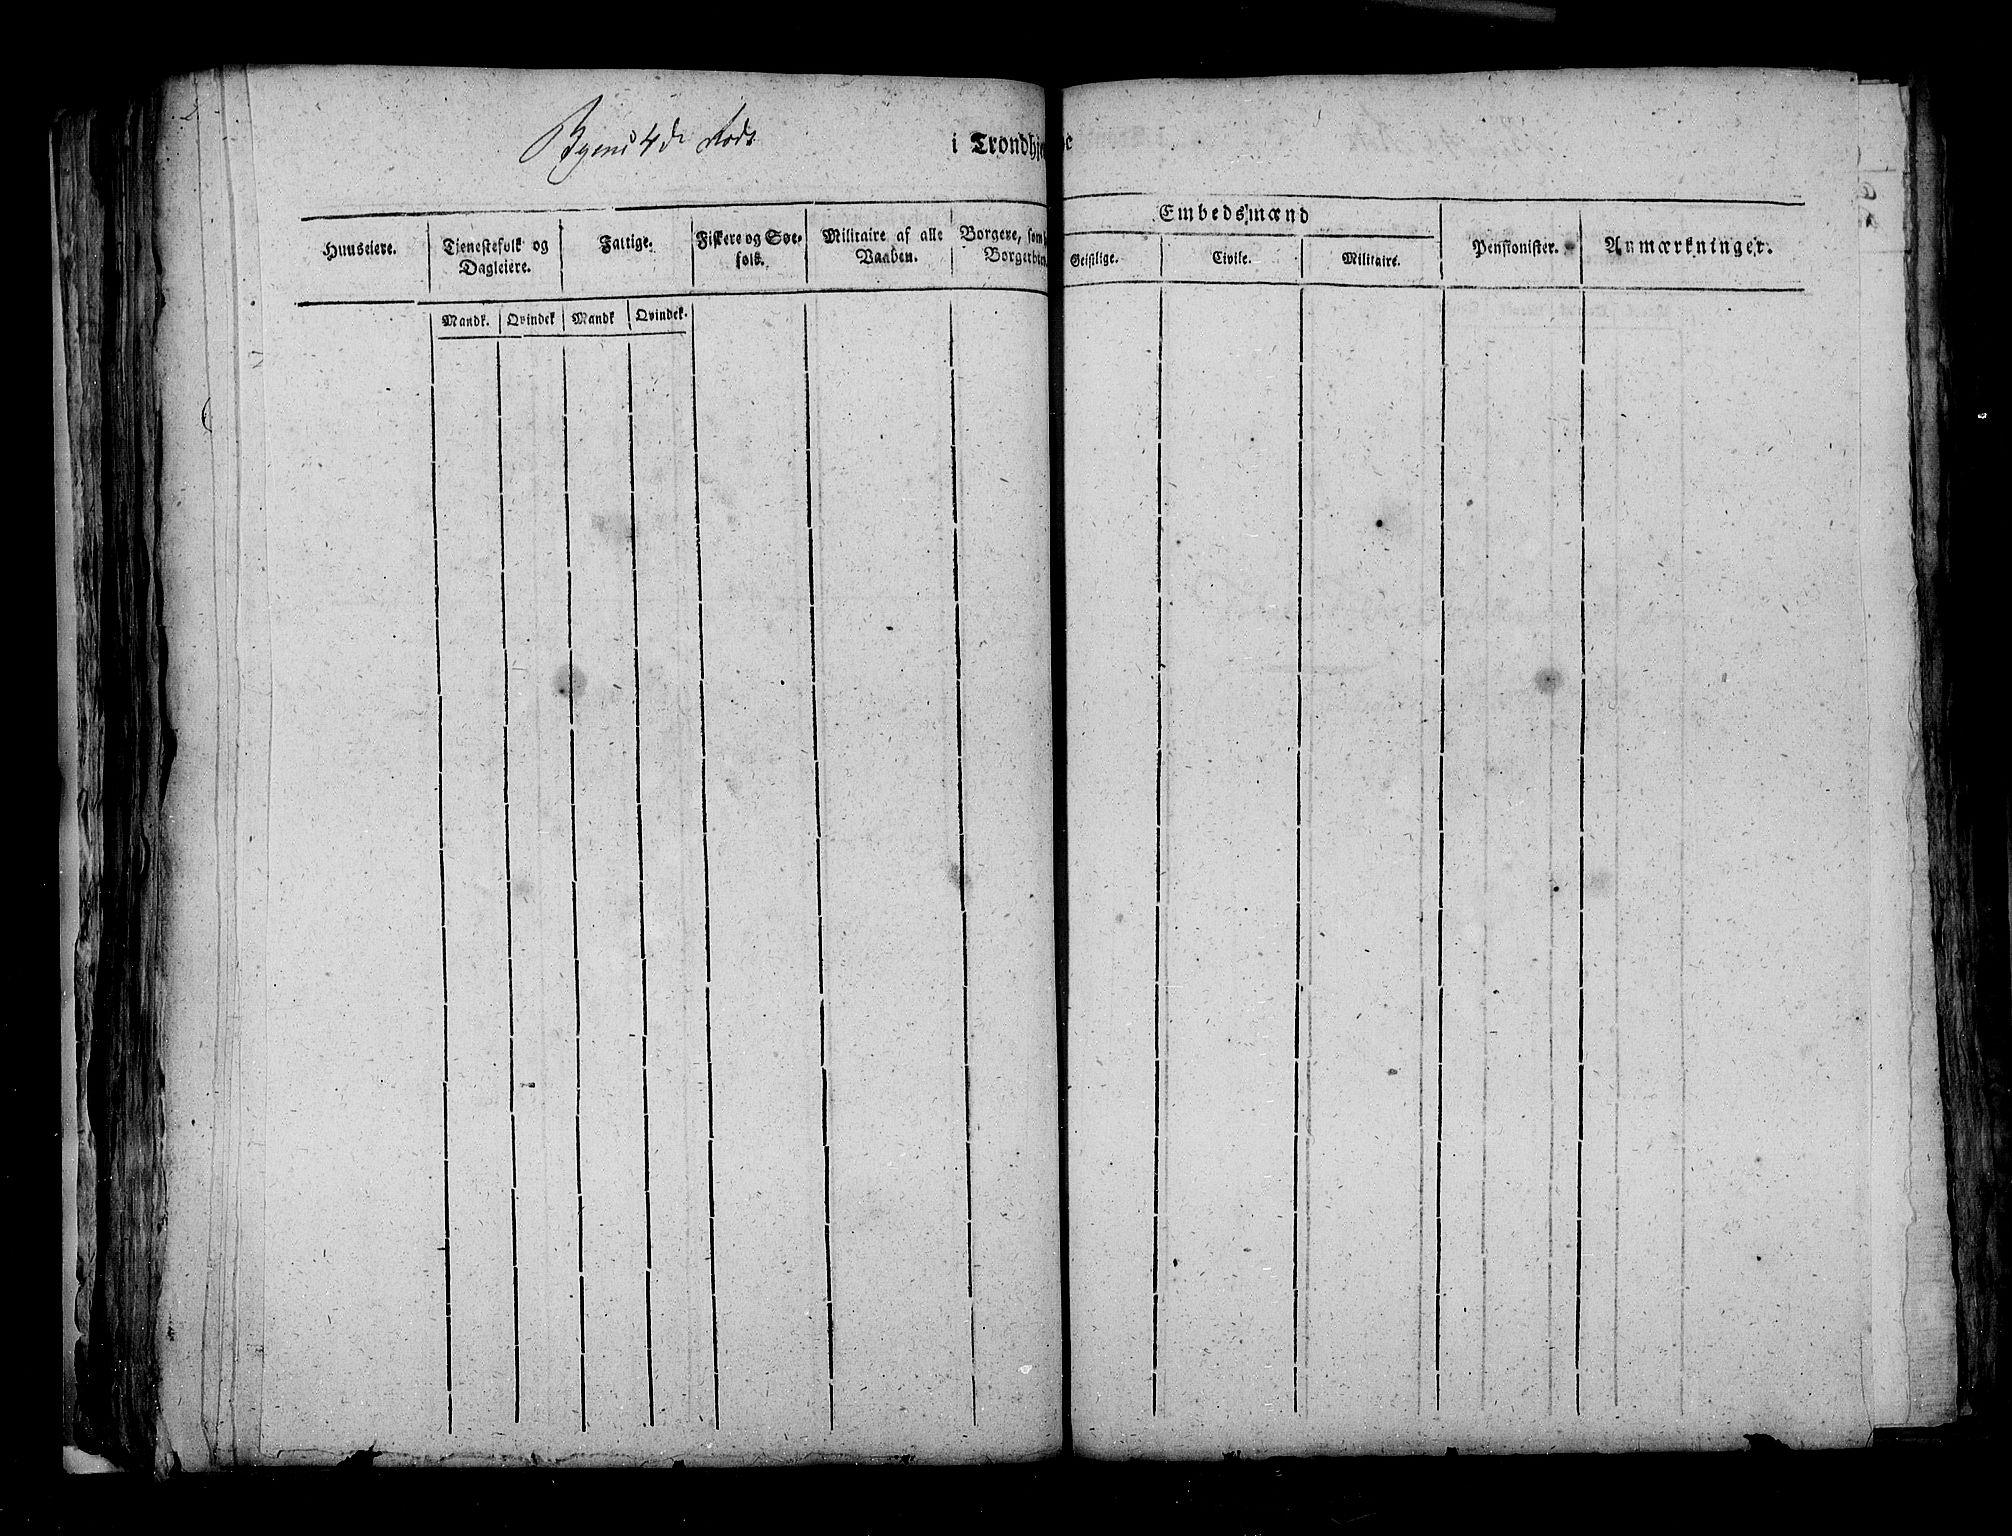 Byens 4de Rode i Trondhje
Embedsmænd
Huuseiere. Tjenestefolk og Dagleiere. Fattige. Fiskere og Søe-folk. Militaire af alle Vaaben. Borgere, som Borgerbr Geistlige. Civile. Militaire. Pensionister. Anmærkninger.
Mandk. Qvindek Mandk Qvindek.